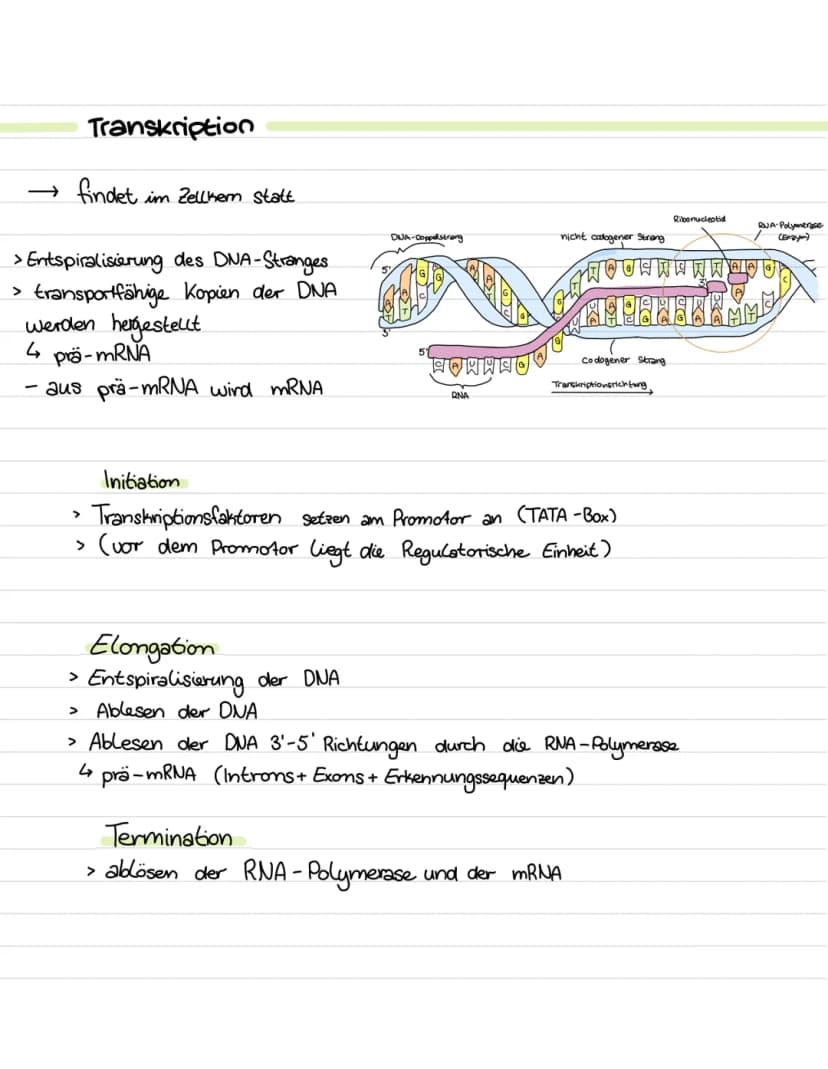 Transkription
→ findet im Zellkern statt
> Entspiralisierung des DNA-Stranges
> transportfähige Kopien der DNA
werden hergestellt
↳ prä-mRNA
- aus prä-mRNA wird mRNA
DNA-Doppelstrang
nicht codogener Strang
Ribonucleotid
RNA-Polymerase
(Enzym)
5'
3'
3'
5'
RNA
Codogener Strang
Transkriptionsrichtung
Initiation
> Transkriptionsfaktoren setzen am Promotor an (TATA-Box)
> (vor dem Promotor liegt die Regulatorische Einheit)
Elongation
> Entspiralisierung der DNA
> Ablesen der DNA
> Ablesen der DNA 3'-5' Richtungen durch die RNA-Polymerase
↳ prä-mRNA (Introns + Exons + Erkennungssequenzen)
Termination
> ablösen der RNA-Polymerase und der mRNA